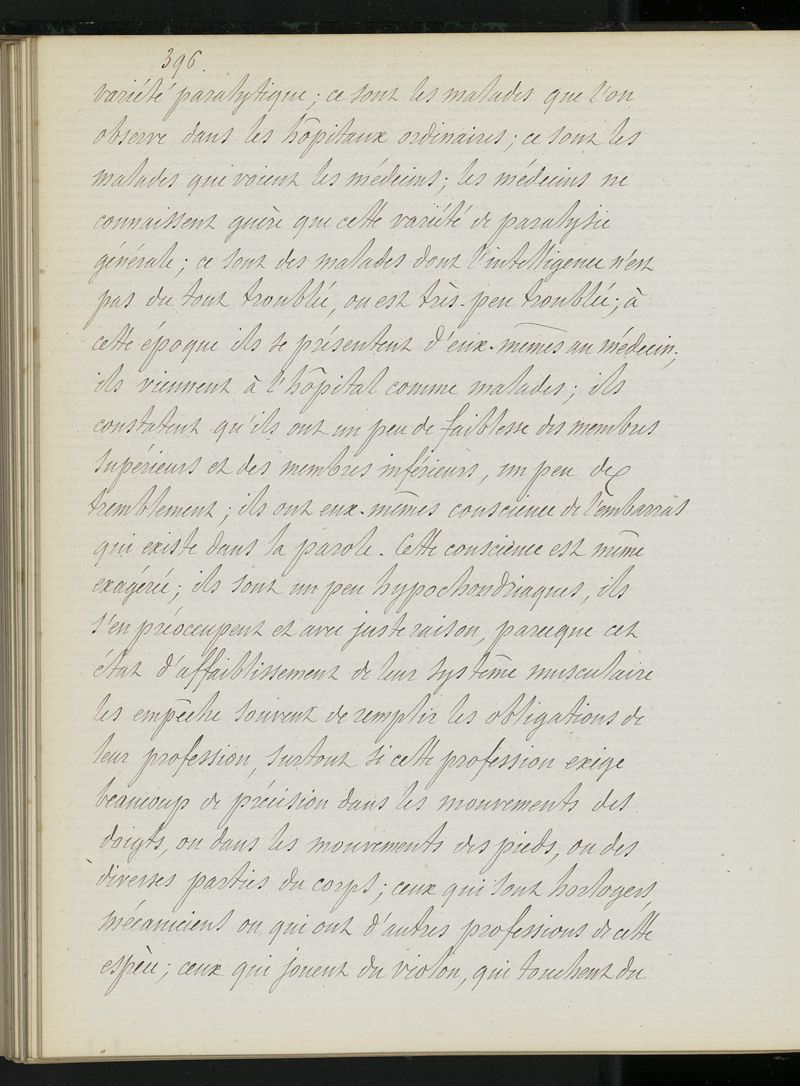 396.
variété paralytique; ce sont les malades que l'on
observe dans les hôpitaux ordinaires; ce sont les
malades que voient les médecins; les médecins ne
connaissent guère que cette variété de paralysie
générale; ce sont des malades dont l'intelligence n'est
pas du tout troublée, ou est très-peu troublée; à
cette époque ils se présentent d'eux-mêmes au médecin;
ils viennent à l'hôpital comme malades; ils
constatent qu'ils ont un peu de faiblesse des membres
supérieurs et des membres inférieurs, un peu de
tremblement; ils ont eux-mêmes conscience de l'embarras
qui existe dans la parole. Cette conscience est même
exagérée; ils sont un peu hypochondriaques, ils
s'en préoccupent et avec juste raison, parceque cet
état d'affaiblissement de leur système musculaire
les empêche souvent de remplir les obligations de
leur profession, surtout si cette profession exige
beaucoup de précision dans les mouvements des
doigts, ou dans les mouvements des pieds, ou des
diverses parties du corps; ceux qui sont horlogers,
mécaniciens ou qui ont d'autres professions de cette
espèce; ceux qui jouent du violon, qui touchent du